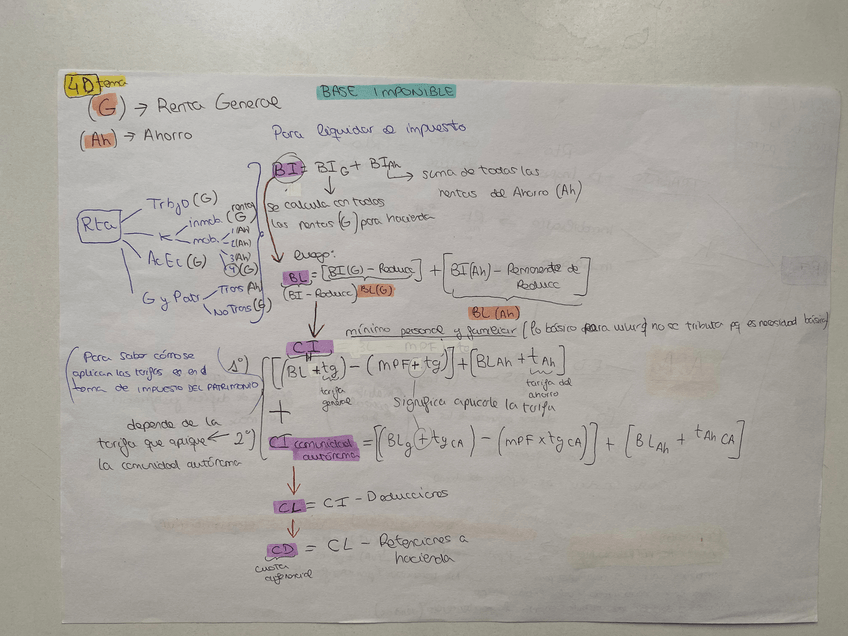 4D tema
BASE IMPONIBLE
(G) → Renta General
(Ah) → Ahorro
Para liquidar el impuesto
BI = BI G + BI Ah
→ suma de todas las
rentas del Ahorro (Ah)
se calcula con todas
las rentas (G) para hacienda
Rta
Trbjo (G)
K
inmob. (G)
mob.
rentas
1(Ah)
2(Ah)
3(Ah)
4(G)
Ac Ec (G)
G y Patr
Trans Ah
No Trans (G)
luego:
BL = [BI(G) - Reducc] + [BI(Ah) - Remanente de
Reducc]
(BI - Reducc) BL(G)
BL (Ah)
mínimo personal y familiar (lo básico para vivir) no se tributa pq es necesidad básica)
CI
MPF
(Para saber cómo se
aplican las tarifas es en el
tema de IMPUESTO DEL PATRIMONIO)
1º) [(BL + tg) - (MPF + tg)] + [BL Ah + t Ah]
tarifa
general
tarifa del
ahorro
+
significa aplicarle la tarifa
depende de la
tarifa que aplique ← 2º)
la comunidad autónoma
CI comunidad autónoma = [(BLg + tg CA) - (MPF x tg CA)] + [BL Ah + t Ah CA]
CL = CI - Deducciones
CD = CL - Retenciones a
hacienda
cuota
diferencial